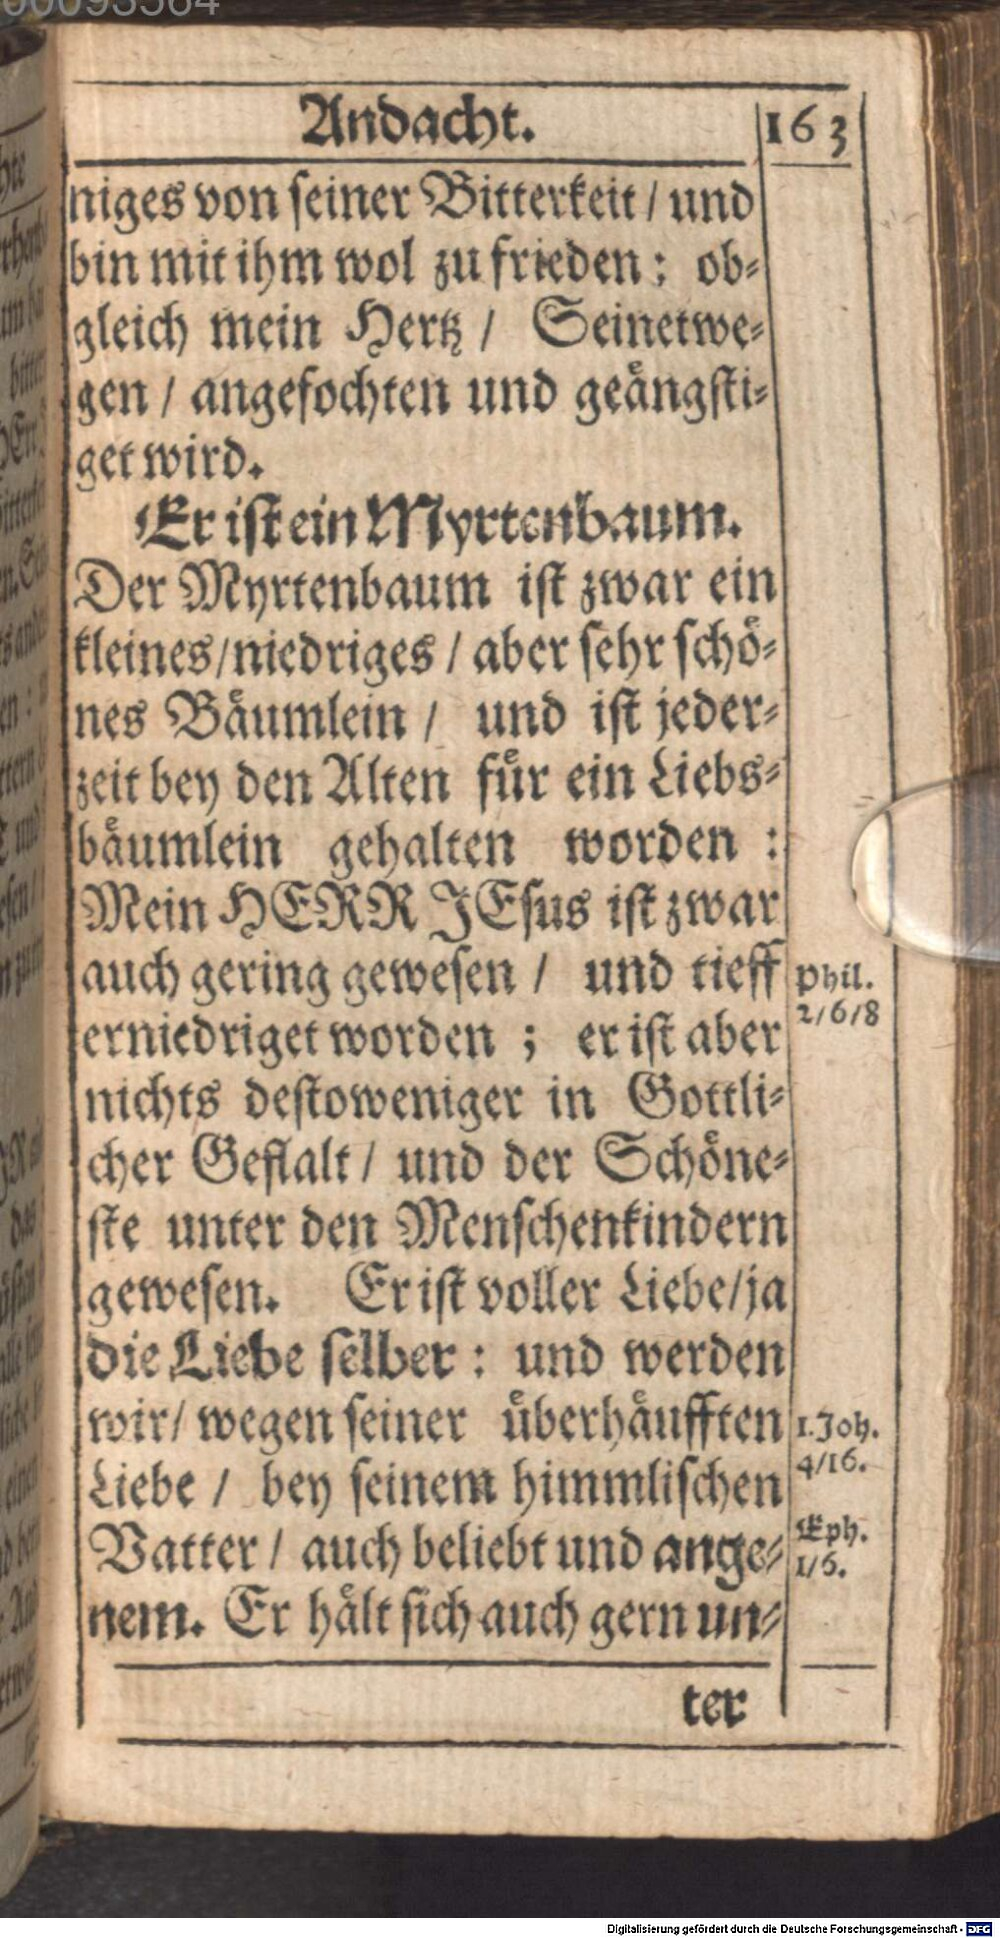 Andacht. 163
niges von seiner Bitterkeit / und
bin mit ihm wol zu frieden: ob-
gleich mein Hertz / Seinetwe-
gen / angefochten und geängsti-
get wird.
Er ist ein Myrtenbaum.
Der Myrtenbaum ist zwar ein
kleines/niedriges / aber sehr schö-
nes Bäumlein / und ist jeder-
zeit bey den Alten für ein Liebs-
bäumlein gehalten worden :
Mein HERR JEsus ist zwar
auch gering gewesen / und tieff
Phil.
2/6/8
erniedriget worden ; er ist aber
nichts destoweniger in Gottli-
cher Gestalt / und der Schöne-
ste unter den Menschenkindern
gewesen. Er ist voller Liebe/ja
die Liebe selber : und werden
wir/ wegen seiner überhäufften
1. Joh.
4/16.
Liebe / bey seinem himmlischen
Vatter / auch beliebt und ange-
Eph.
1/6.
nem. Er hält sich auch gern un-
ter
Digitalisierung gefördert durch die Deutsche Forschungsgemeinschaft - DFG